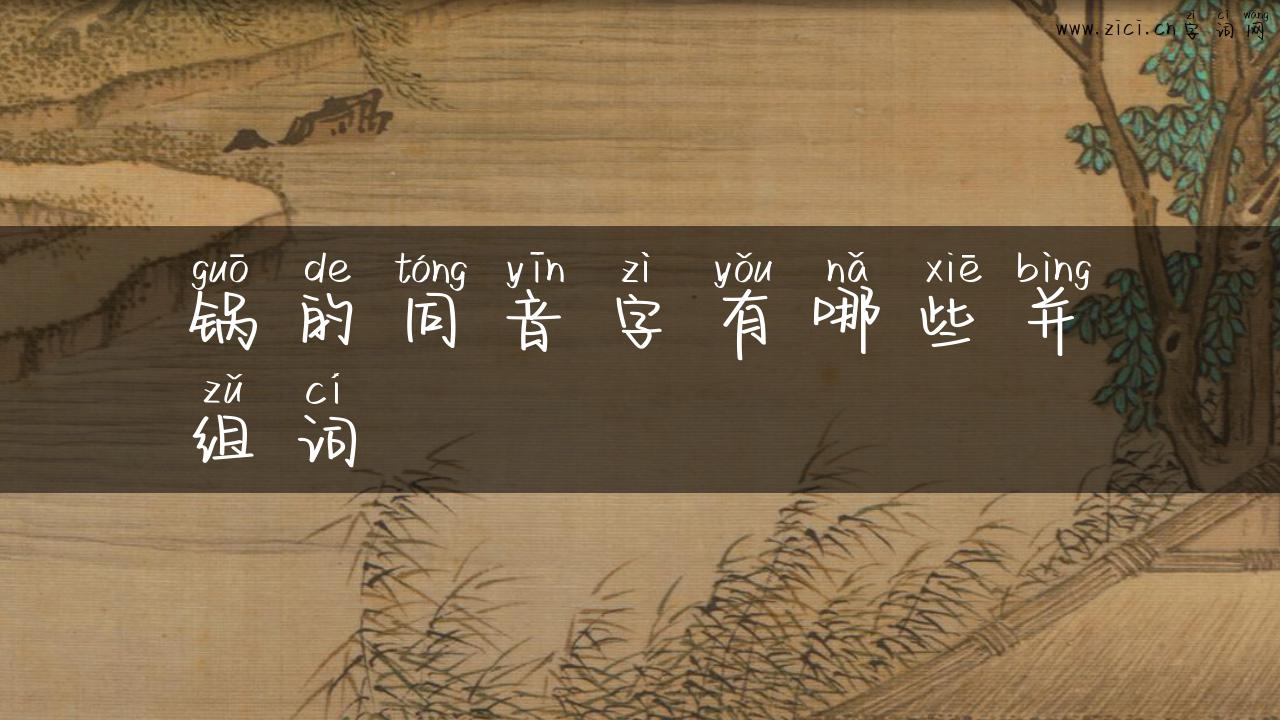 zì cí wǎng
www.zici.cn字词网
guō de tóng yīn zì yǒu nǎ xiē bìng
锅的同音字有哪些并
zǔ cí
组词